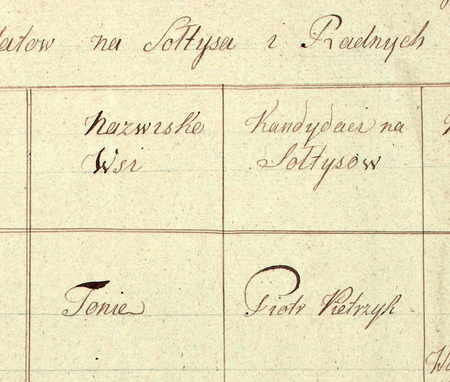 datow na Sołtysa i Radnych
Nazwisko
Wsi
Kandydaci na
Sołtysów
Tonie
Piotr Pietrzyk